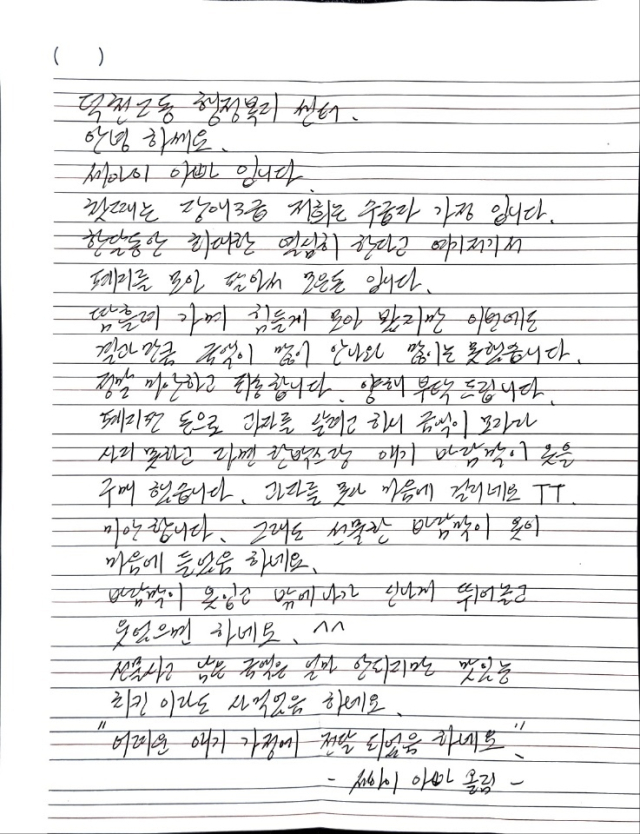 ( )
덕천2동 행정복지 센터.
안녕 하세요.
세아이 아빠 입니다.
첫째는 장애3급 저희는 수급자 가정 입니다.
한달동안 최대한 열심히 한다고 여기저기서
폐지를 모아 팔아서 모은돈 입니다.
땀흘려 가며 힘들게 모아 봤지만 이번에도
결과만큼 금액이 많이 안나와 많이는 못했습니다.
정말 미안하고 죄송합니다. 양해 부탁 드립니다.
폐지판 돈으로 과자를 살려고 하니 금액이 모자라
사지 못하고 라면 한박스랑 애기 바람막이 옷을
구매 했습니다. 과자를 못사 마음에 걸리네요 TT.
미안합니다. 그래도 선물한 바람막이 옷이
마음에 들었음 하네요.
바람막이 옷입고 밖에나가 신나게 뛰어놀고
웃었으면 하네요. ^^
선물사고 남은 금액은 얼마 안되지만 맛있는
치킨 이라도 사먹었음 하네요.
"어려운 애기 가정에 전달 되었음 하네요"
- 세아이 아빠 올림 -